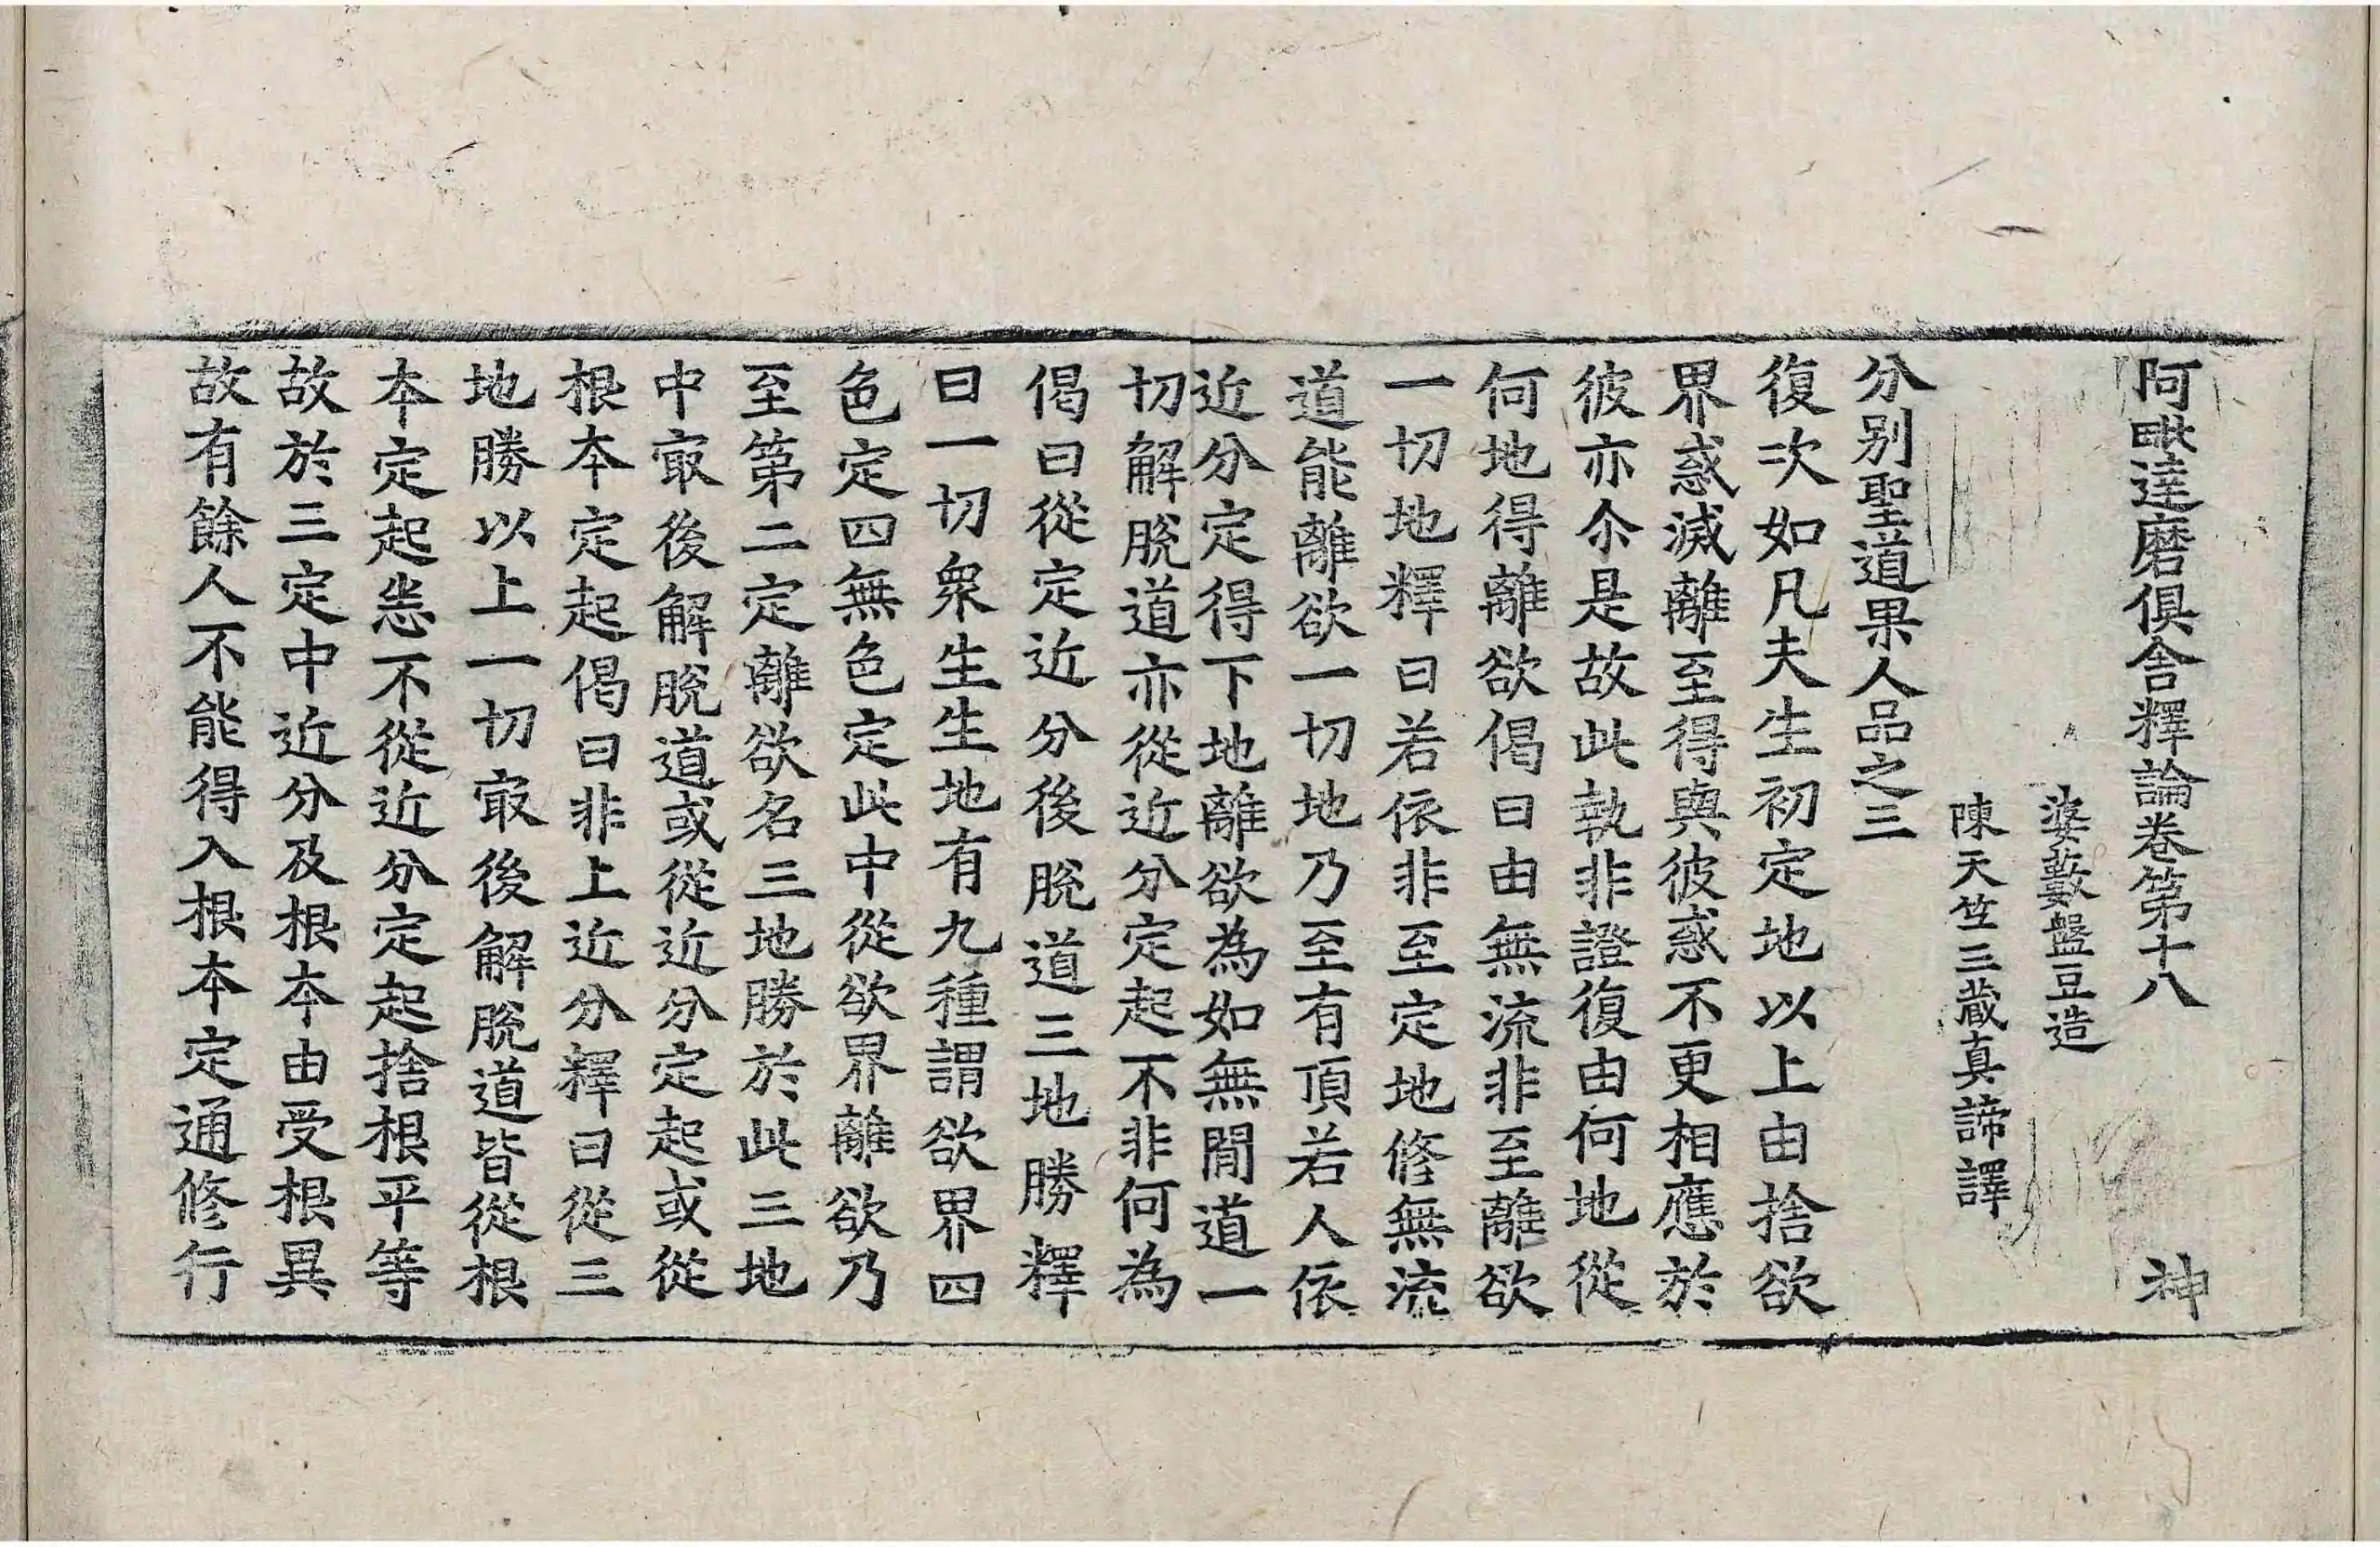 阿毗達磨俱舍釋論卷第十八　神
婆藪盤豆造
陳天竺三藏真諦譯
分別聖道果人品之三
復次如凡夫生初定地以上由捨欲
界惑滅離至得與彼惑不更相應於
彼亦尒是故此執非證復由何地從
何地得離欲偈曰由無流非至離欲
一切地釋曰若依非至定地修無流
道能離欲一切地乃至有頂若人依
近分定得下地離欲為如無間道一
切解脫道亦從近分定起不非何為
偈曰從定近分後脫道三地勝釋
曰一切衆生生地有九種謂欲界四
色定四無色定此中從欲界離欲乃
至第二定離欲名三地勝於此三地
中㝡後解脫道或從近分定起或從
根本定起偈曰非上近分釋曰從三
地勝以上一切㝡後解脫道皆從根
本定起恙不從近分定起捨根平等
故於三定中近分及根本由受根異
故有餘人不能得入根本定通修行